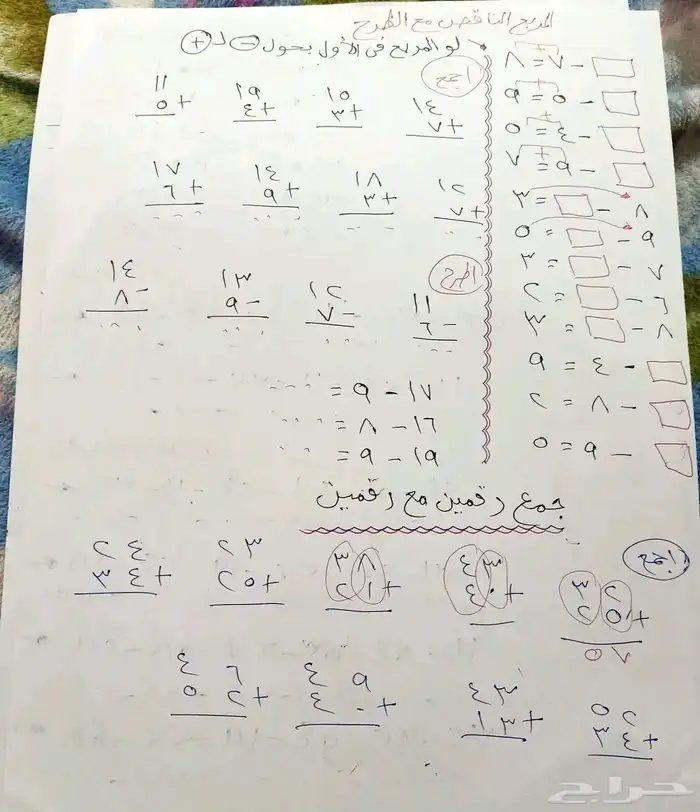 المربع الناقص مع الطرح
لو المربع فى الأول بحول − لـ +
□ − ٧ = ٨
□ − ٥ = ٩
□ − ٤ = ٥
□ − ٩ = ٧
٨ − □ = ٣
٩ − □ = ٥
٧ − □ = ٣
٦ − □ = ٢
٨ − □ = ٣
□ − ٤ = ٩
□ − ٨ = ٢
□ − ٩ = ٥
اجمع
١٤ ١٥ ١٩ ١١
+٧ +٣ +٤ +٥
١٢ ١٨ ١٤ ١٧
+٧ +٣ +٩ +٦
اطرح
١١ ١٢ ١٣ ١٤
−٦ −٧ −٩ −٨
١٧ − ٩ =
١٦ − ٨ =
١٩ − ٩ =
جمع رقمين مع رقمين
اجمع
٣٢ ٤٣ ٣٨ ٢٣ ٢٤
+٢٥ +٤٠ +٢١ +٢٥ +٣٤
٥٧
٥٢ ٤٣ ٤٩ ٤٦
+٣٤ +١٣ +٤٠ +٥٢
حراج